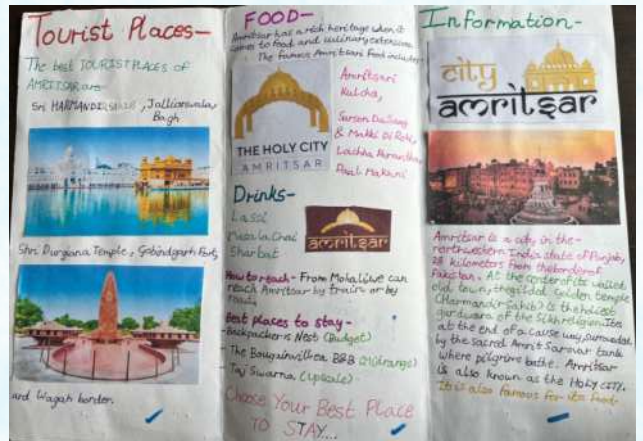 Tourist Places-
The best TOURIST PLACES of
AMRITSAR are-
Sri HARMANDIR SAHIB, Jallianwala
Bagh
Shri Durgiana Temple, Gobindgarh Fort,
and Wagah border.
FOOD-
Amritsar has a rich heritage when it
comes to food and culinary extension.
The famous Amritsari Food includes-
Amritsari
Kulcha,
Sarson Da Saag
& Makki Di Roti,
Lachha Parantha
Daal Makhni
THE HOLY CITY
AMRITSAR
Drinks-
Lassi
Masala Chai
Sharbat
amritsar
How to reach- From Mohali we can
reach Amritsar by train or by
road.
Best places to stay-
Backpacker's Nest (Budget)
The Bougainvillea B&B (Midrange)
Taj Swarna (Upscale)
Choose Your Best Place
TO STAY...
Information-
city
amritsar
Amritsar is a city in the
northwestern India state of Punjab,
28 kilometers from the border of
Pakistan. At the center of its walled
old town, the gilded Golden temple
(Harmandir Sahib) is the holiest
gurdwara of the Sikh religion. Its
at the end of a causeway, surrounded
by the sacred Amrit Sarovar tank
where pilgrims bathe. Amritsar
is also known as the Holy CITY.
It is also famous for its food.